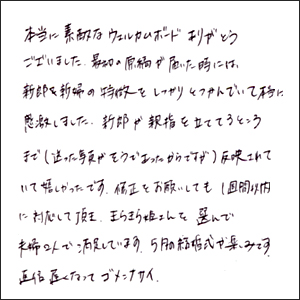 本当に素敵なウェルカムボードありがとう
ございました。最初の原稿が届いた時には、
新郎と新婦の特徴をしっかりとつかんでいて本当に
感激しました。新郎が親指を立ててるところ
まで(送った写真がそうであったからですが)反映されて
いて嬉しかったです。修正をお願いしても1週間以内
に対応して頂き、まらまら姫さんを選んで
夫婦2人で満足しています。5月の結婚式が楽しみです。
返信遅くなってゴメンナサイ。